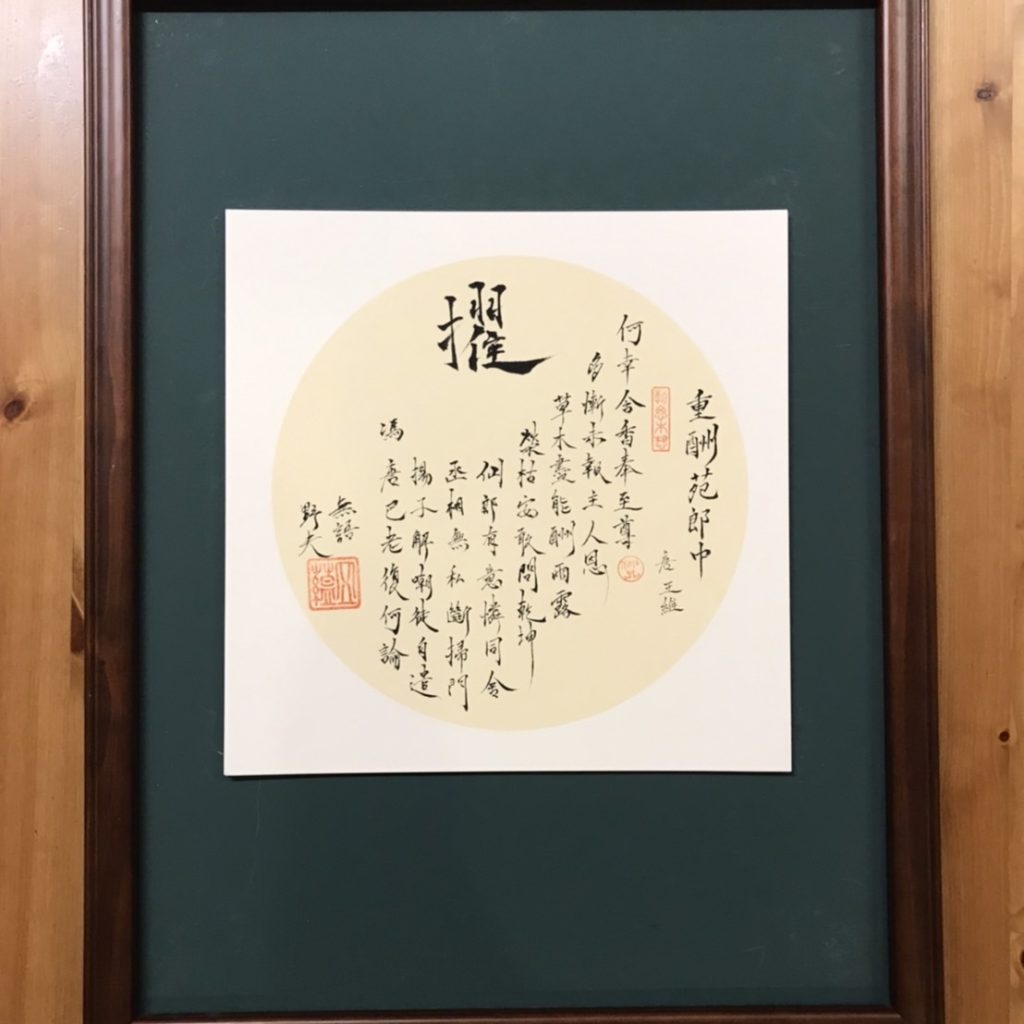 重酬苑郎中
唐 王維
何幸含香奉至尊
多慚未報主人恩
草木盡能酬雨露
榮枯安敢問乾坤
仙郎有意憐同舍
丞相無私斷掃門
揚子解嘲徒自遣
馮唐已老復何論
擢
無語
野夫